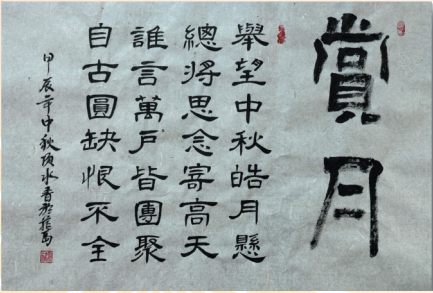 賞月
舉望中秋皓月懸
總將思念寄高天
誰言萬戶皆團聚
自古圓缺恨不全
甲辰年中秋陵水香於桂島